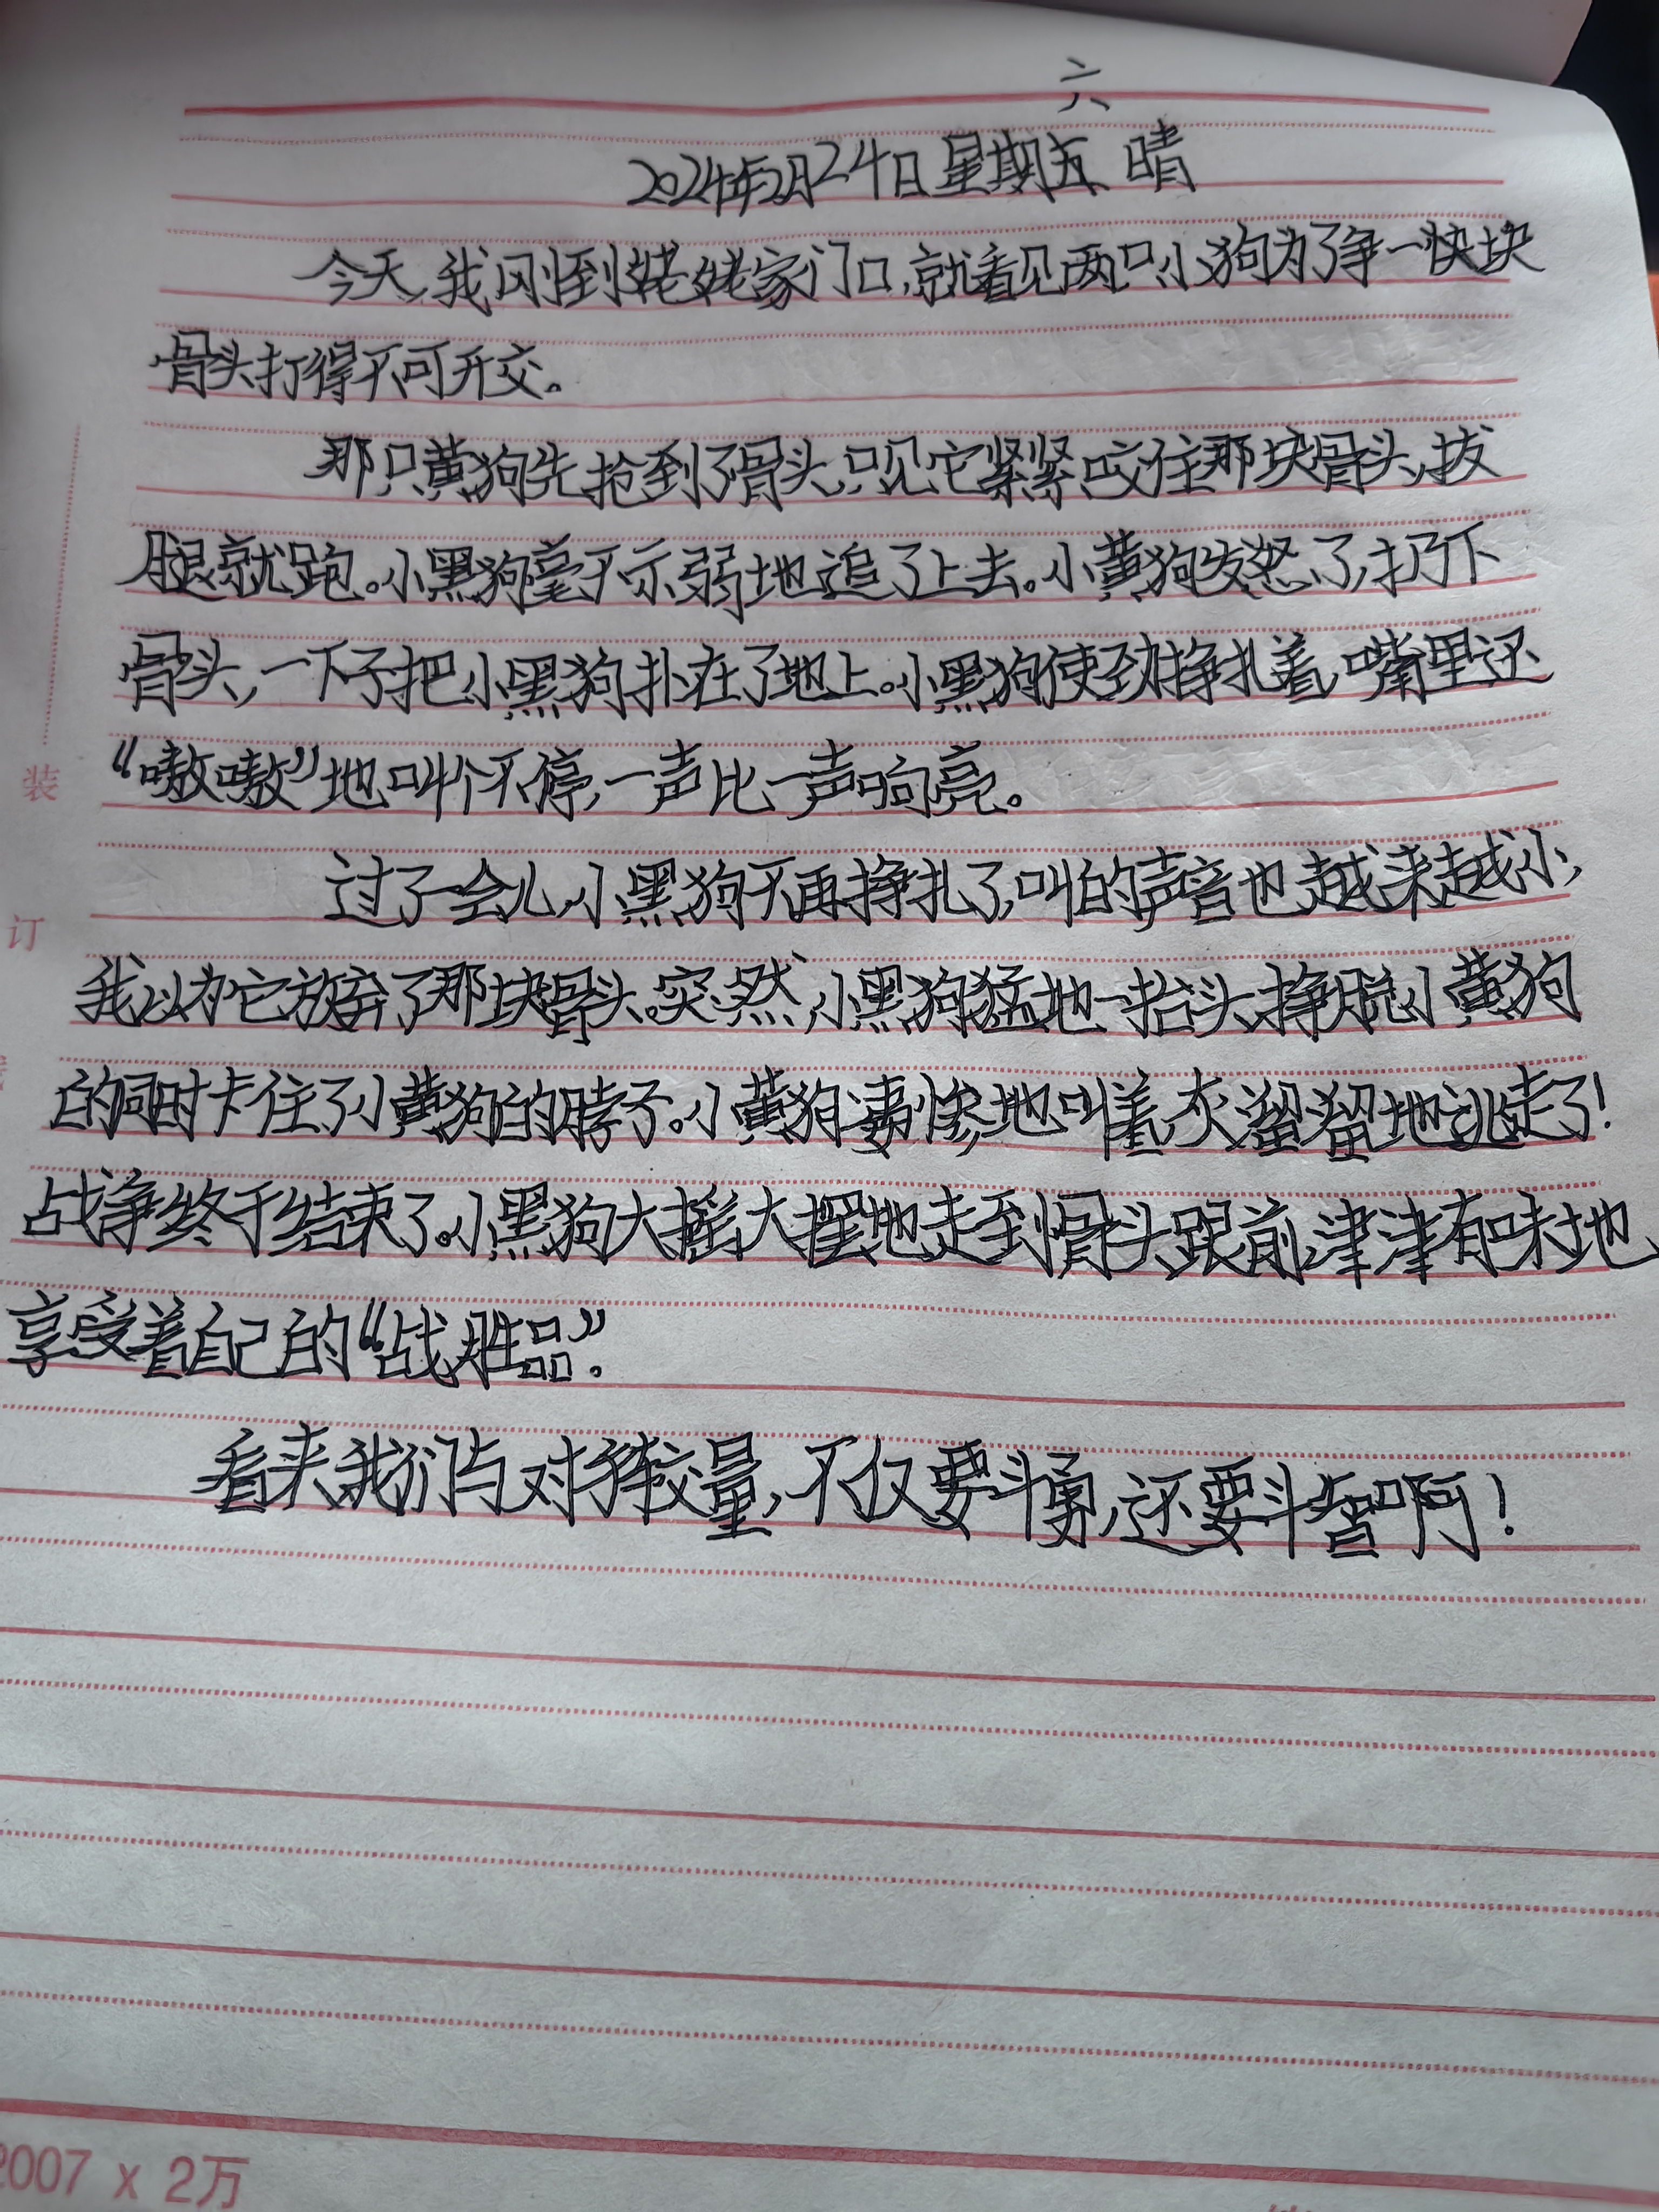 六
2024年2月24日 星期五 晴
今天,我刚到姥姥家门口,就看见两只小狗为了争一快块
骨头打得不可开交。
那只黄狗先抢到了骨头,只见它紧紧咬住那块骨头,拔
腿就跑。小黑狗毫不示弱地追了上去。小黄狗发怒了,扔下
骨头,一下子把小黑狗扑在了地上。小黑狗使劲挣扎着,嘴里还
“嗷嗷”地叫个不停,一声比一声响亮。
过了一会儿,小黑狗不再挣扎了,叫的声音也越来越小,
我以为它放弃了那块骨头。突然,小黑狗猛地一抬头,挣脱小黄狗
的同时卡住了小黄狗的脖子。小黄狗凄惨地叫着,灰溜溜地逃走了!
战争终于结束了。小黑狗大摇大摆地走到骨头跟前,津津有味地
享受着自己的“战胜品”。
看来我们与对手较量,不仅要斗勇,还要斗智啊!
装
订
2007 x 2万